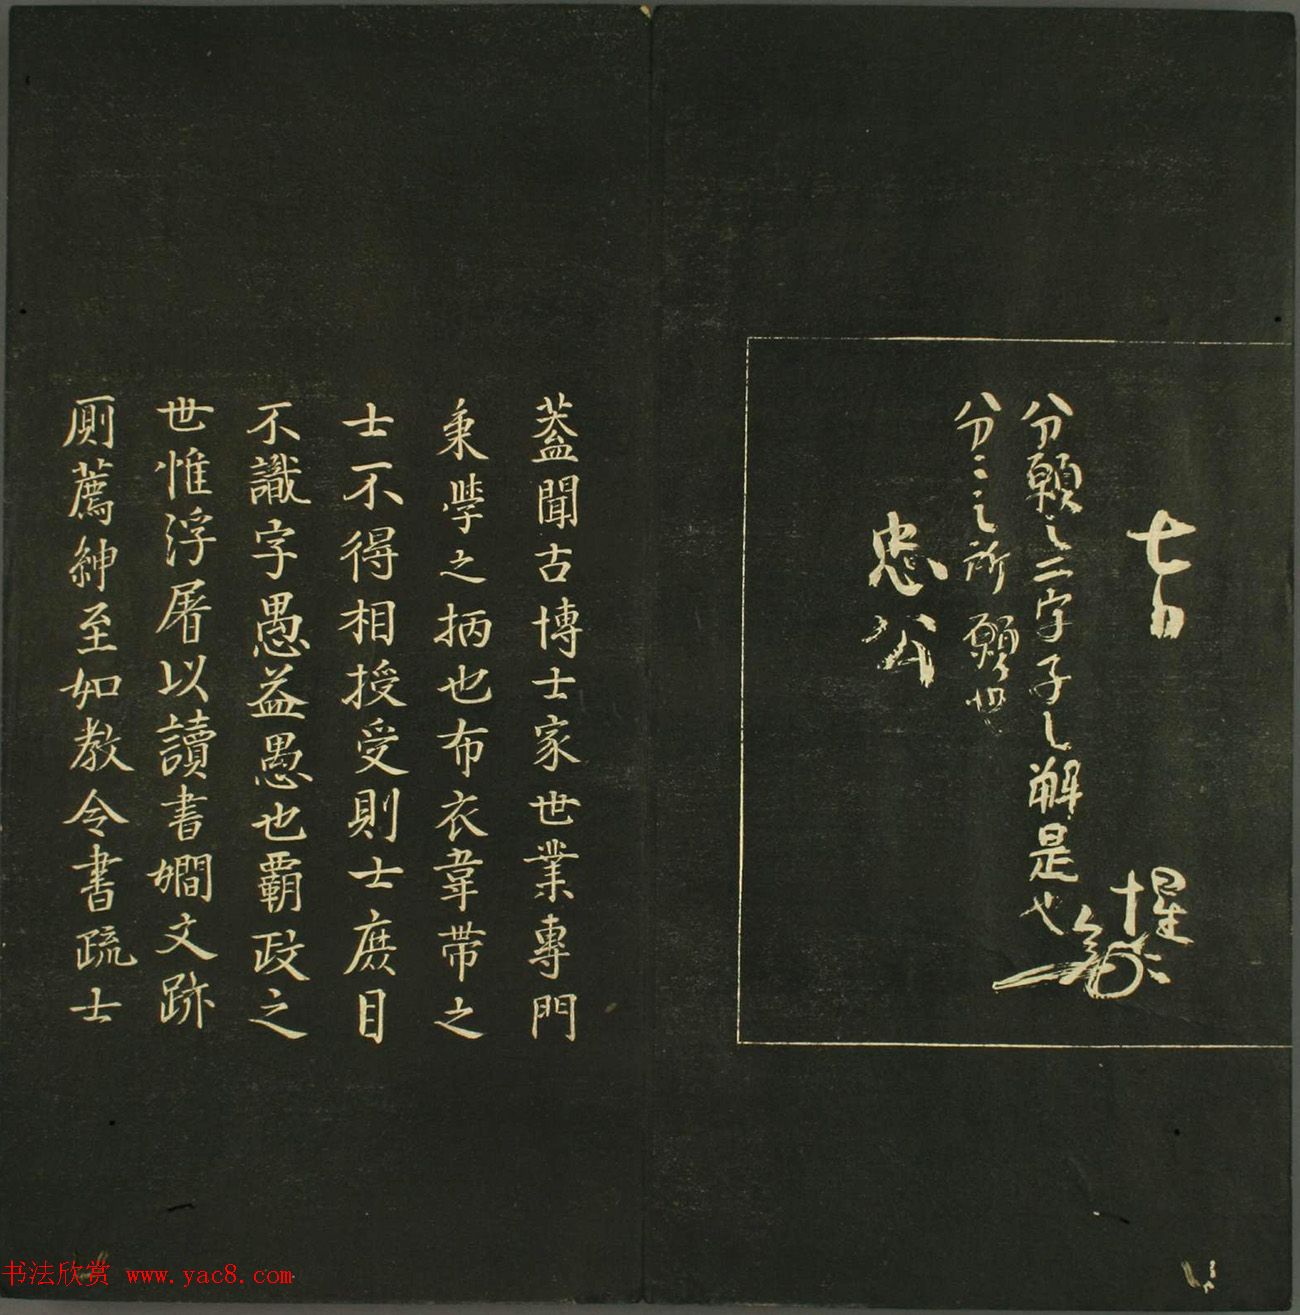 七日
惺
分願之二字子之解是也
分々之所願也
忠公
蓋聞古博士家世業專門
秉學之柄也布衣韋帶之
士不得相授受則士庶目
不識字愚益愚也霸政之
世惟浮屠以讀書嫺文跡
厠薦紳至如教令書疏士
书法欣赏 www.yac8.com